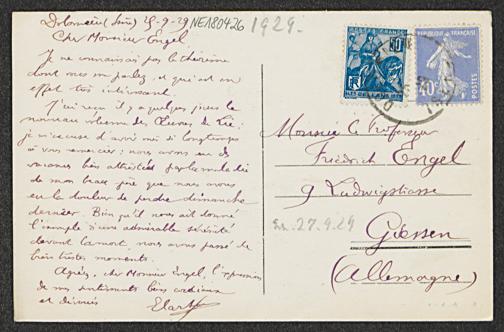 Dolomieu (Isère) 25-9-29 NE180426 1929.
Cher Monsieur Engel.
Je ne connaissais pas la théorème
dont vous me parlez, et qui est en
effet très intéressant.
J'ai reçu il y a quelques jours le
nouveau volume des Œuvres de Lie;
je m'excuse d'avoir mis si longtemps
à vous remercier; nous avons eu des
vacances bien attristées par la maladie
de mon beau père que nous avons
eu la douleur de perdre dimanche
dernier. Bien qu'il nous ait donné
l'exemple d'une admirable sérénité
devant la mort, nous avons passé de
bien tristes moments.
Agréez, cher Monsieur Engel, l'expression
de mes sentiments bien cordiaux
et dévoués
E Cartan
POSTES FRANCE
RF
REPUBLIQUE FRANÇAISE
40c
POSTES
Monsieur le Professeur
Friedrich Engel
9 Ludwigstrasse
Giessen
(Allemagne)
27.9.29